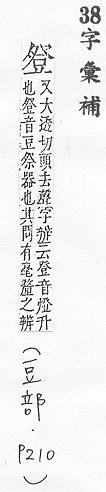 38字彙補
豋
又大透切頭去聲字辨云登音燈升
也豋音豆祭器也其間有毫釐之辨
(豆部.P210)